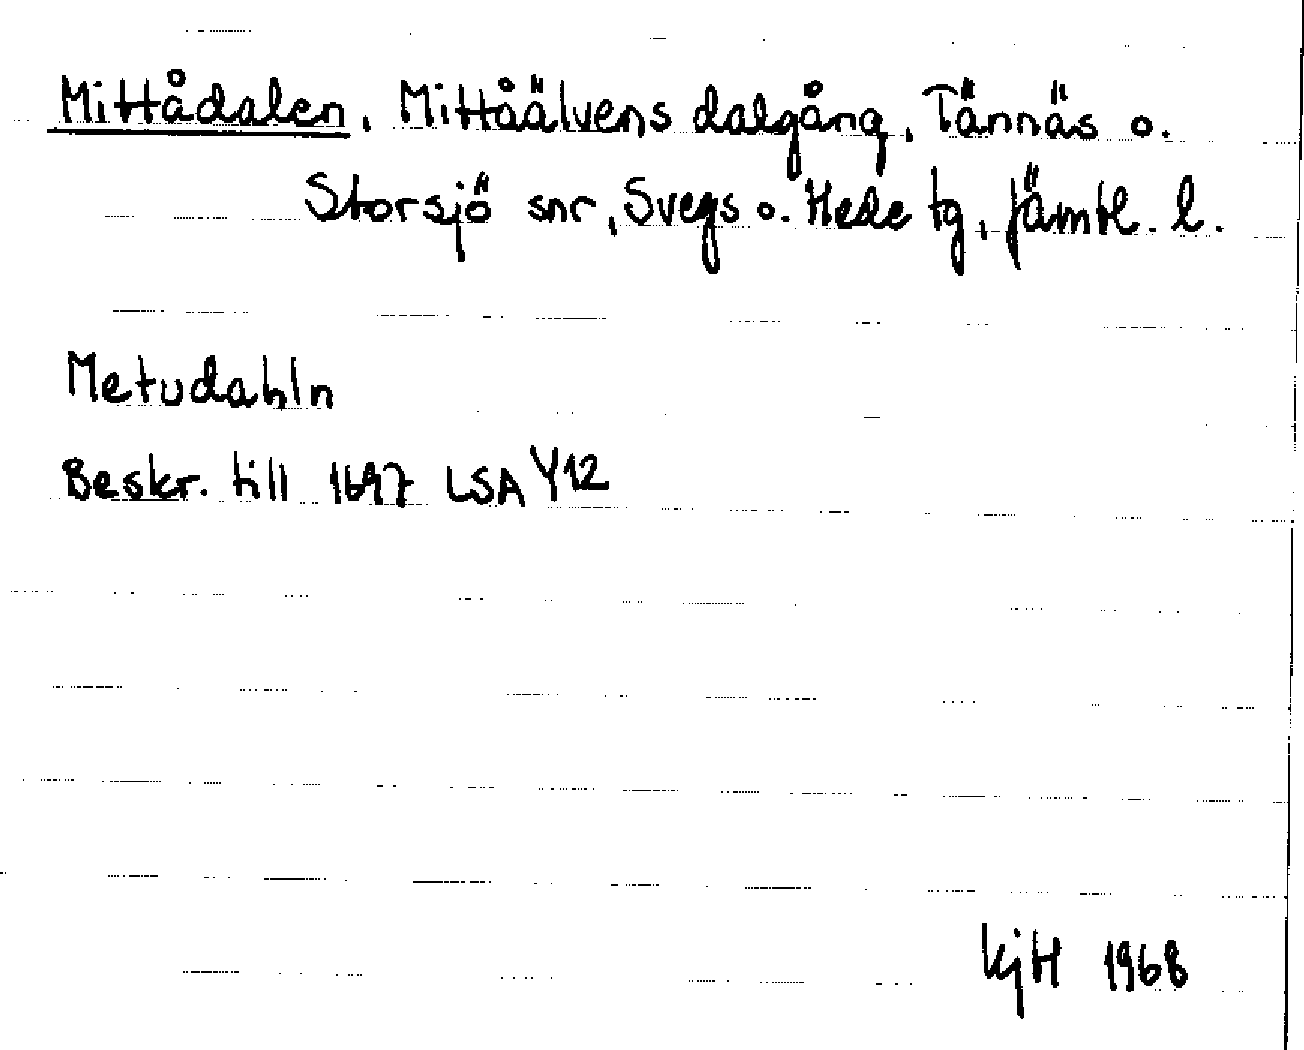 Mittådalen, Mittåälvens dalgång, Tännäs o.
Storsjö snr, Svegs o. Hede tg, Jämtl. l.
Metudahln
Beskr. till 1697 LSA Y12
KjH 1968